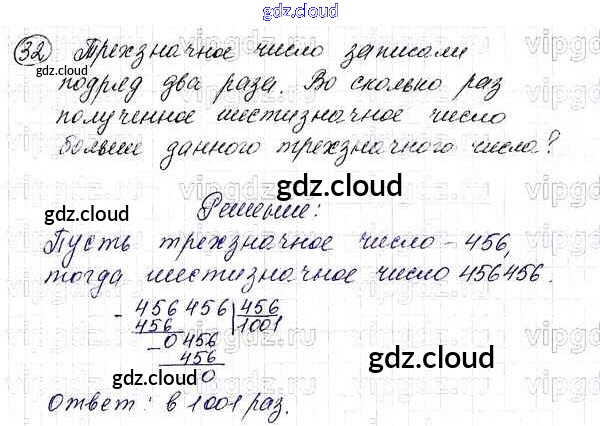 gdz.cloud
32 Трехзначное число записали
gdz.cloud
подряд два раза. Во сколько раз
полученное шестизначное число
больше данного трехзначного числа?
gdz.cloud
gdz.cloud
Решение:
Пусть трехзначное число - 456,
тогда шестизначное число 456456.
- 456 456 | 456
456 1001
- 0 456
456
gdz.cloud
0
gdz.cloud
gdz.cloud
Ответ: в 1001 раз.
gdz.cloud